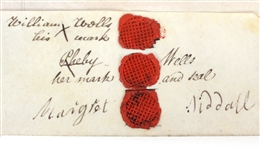 William X Wells
his mark
Pheby Wells
her mark and seal
Margret Siddall